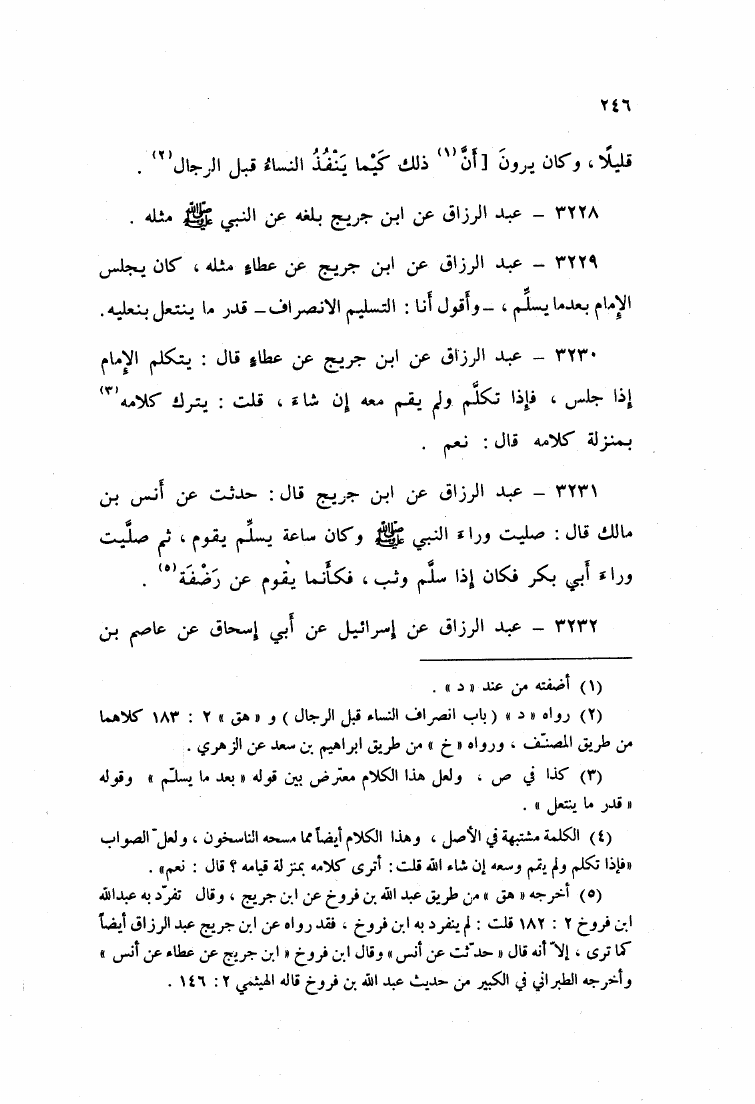 ٢٤٦
قليلًا ، وكان يرونَ [ أَنَّ(١) ذلك كَيْما يَنْفُذُ النساءُ قبل الرجال(٢) .
٣٢٢٨ – عبد الرزاق عن ابن جريج بلغه عن النبي ﷺ مثله .
٣٢٢٩ – عبد الرزاق عن ابن جريج عن عطاءٍ مثله ، كان يجلس
الإمام بعدما يسلِّم ، –وأقول أنا : التسليم الانصراف– قدر ما ينتعل بنعليه.
٣٢٣٠ – عبد الرزاق عن ابن جريج عن عطاءٍ قال : يتكلم الإمام
إذا جلس ، فإذا تكلَّم ولم يقم معه إن شاءَ ، قلت : يترك كلامه(٣)
بمنزلة كلامه قال : نعم .
٣٢٣١ – عبد الرزاق عن ابن جريج قال : حدثت عن أنس بن
مالك قال : صليت وراءَ النبي ﷺ وكان ساعة يسلِّم يقوم ، ثم صلَّيت
وراءَ أبي بكر فكان إذا سلَّم وثب ، فكأنما يقوم عن رَضْفَة(٥) .
٣٢٣٢ – عبد الرزاق عن إسرائيل عن أبي إسحاق عن عاصم بن
(١) أضفته من عند « د » .
(٢) رواه « د » ( باب انصراف النساء قبل الرجال ) و « هق » ٢ : ١٨٣ كلاهما
من طريق المصنّف ، ورواه « خ » من طريق ابراهيم بن سعد عن الزهري .
(٣) كذا في ص ، ولعل هذا الكلام معترض بين قوله « بعد ما يسلّم » وقوله
« قدر ما ينتعل » .
(٤) الكلمة مشتبهة في الأصل ، وهذا الكلام أيضاً مما مسحه الناسخون ، ولعل الصواب
«فإذا تكلم ولم يقم وسعه إن شاء الله قلت : أترى كلامه بمنزلة قيامه ؟ قال : نعم» .
(٥) أخرجه « هق » من طريق عبد الله بن فروخ عن ابن جريج ، وقال تفرّد به عبدالله
ابن فروخ ٢ : ١٨٢ قلت : لم ينفرد به ابن فروخ ، فقد رواه عن ابن جريج عبد الرزاق أيضاً
كما ترى ، إلاّ أنه قال « حدّثت عن أنس» وقال ابن فروخ « ابن جريج عن عطاء عن أنس »
وأخرجه الطبراني في الكبير من حديث عبد الله بن فروخ قاله الهيثمي ٢ : ١٤٦ .